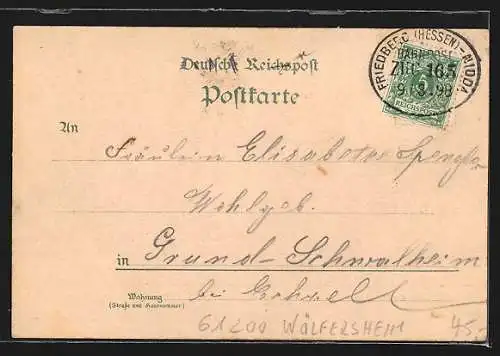 Deutsche Reichspost
Postkarte
FRIEDBERG (HESSEN)-NIDDA
BAHNPOST
ZUG 165
9.8.98
5
REICHSPOST
An
Fräulein Elisabethe Spengler
Wohlgeb.
in Grund-Schwalheim
bei Echzell
Wohnung
(Straße und Hausnummer)
61200 WÖLFERSHEIM
45,-